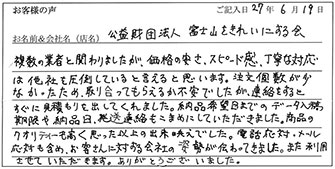 お客様の声
ご記入日 27年 6月19日
お名前&会社名(店名) 公益財団法人 富士山をきれいにする会
複数の業者と関わりましたが、価格の安さ、スピード感、丁寧な対応
は他社を圧倒していると言えると思います。注文個数が少
なかったため、取り合ってもらえるか不安でしたが、連絡すると
すぐに見積もりを出してくれました。納品希望日までのデータ入稿
期限や納品日、発送連絡もこまめにしていただきました。商品の
クオリティーも高く思った以上の出来映えでした。電話応対、メール
応対も含め、お客さんに対する会社の姿勢が伝わってきました。また利用
させていただきます。ありがとうございました。